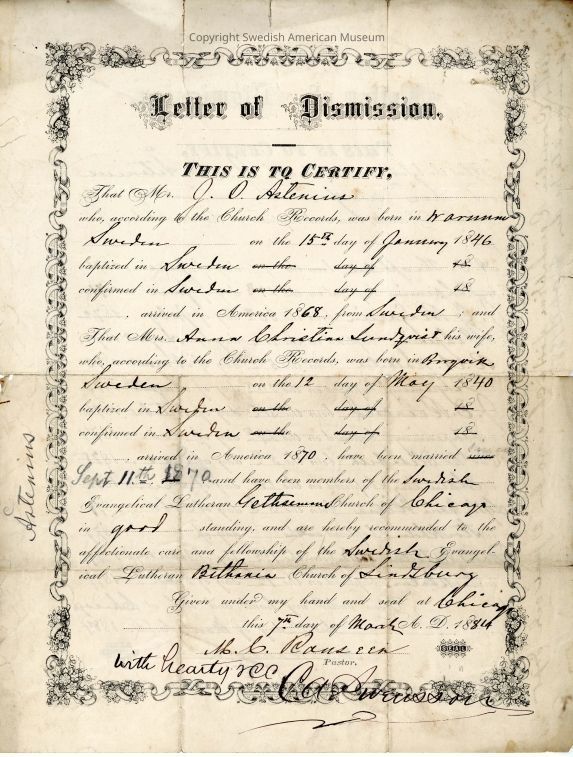 Copyright Swedish American Museum
Letter of Dismission.
THIS IS TO CERTIFY,
That Mr. J. O. Astenius
who, according to the Church Records, was born in
Sweden on the 15th day of January 1846
baptized in Sweden on the day of 18
confirmed in Sweden on the day of 18
arrived in America 1868, from Sweden; and
That Mrs. Anna Christina Lundqvist his wife,
who, according to the Church Records, was born in Brogvik
Sweden on the 12 day of May 1840
baptized in Sweden on the day of 18
confirmed in Sweden on the day of 18
arrived in America 1870, have been married
Sept 11th 1870 and have been members of the Swedish
Evangelical Lutheran Gethsemane Church of Chicago
in good standing, and are hereby recommended to the
affectionate care and fellowship of the Swedish Evangel-
ical Lutheran Bethania Church of Lindsburg
Given under my hand and seal at Chicago
this 7th day of March A. D. 1884
M. C. Ranseen
SEAL
Pastor.
with hearty rec
C A Swensson
Astenius